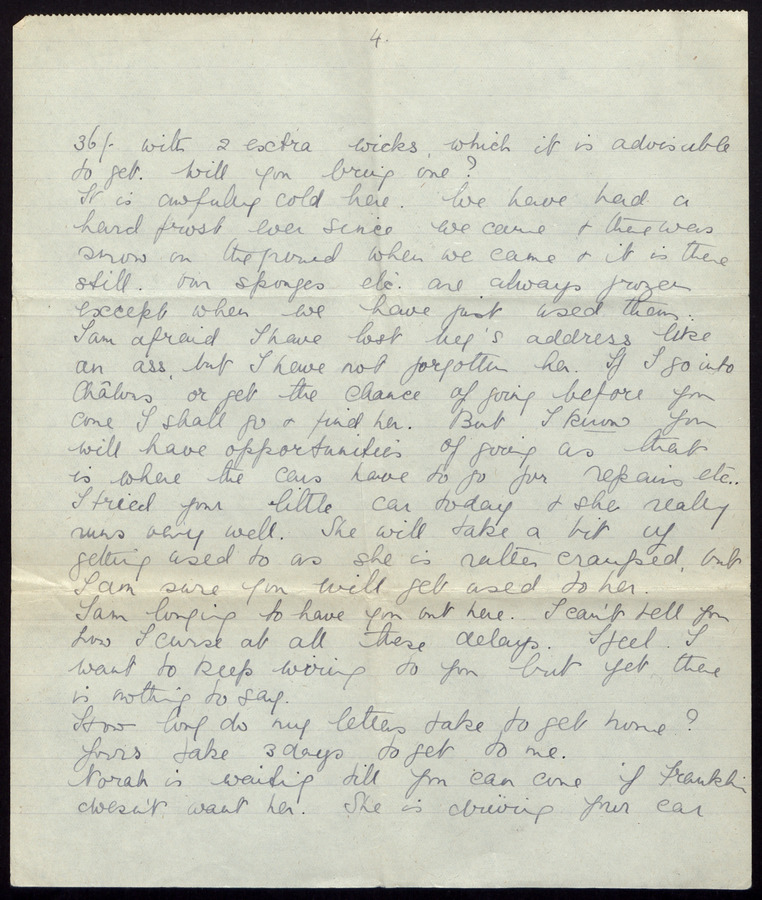 4.
36/- with 2 extra wicks, which it is advisable
to get. Will you bring one?
It is awfully cold here. We have had a
hard frost ever since we came & there was
snow on the ground when we came & it is there
still. Our sponges etc. are always frozen
except when we have just used them.
I am afraid I have lost Meg's address like
an ass, but I have not forgotten her. If I go into
Châlons or get the chance of going before you
come I shall go & find her. But I know you
will have opportunities of going as that
is where the cars have to go for repairs etc..
I tried your little car today & she really
runs very well. She will take a bit of
getting used to as she is rather cramped, but
I am sure you will get used to her.
I am longing to have you out here. I can't tell you
how I curse at all these delays. I feel I
want to keep wiring to you but yet there
is nothing to say.
How long do my letters take to get home?
Yours take 3 days to get to me.
Norah is waiting till you can come if Franklin
doesn't want her. She is driving your car